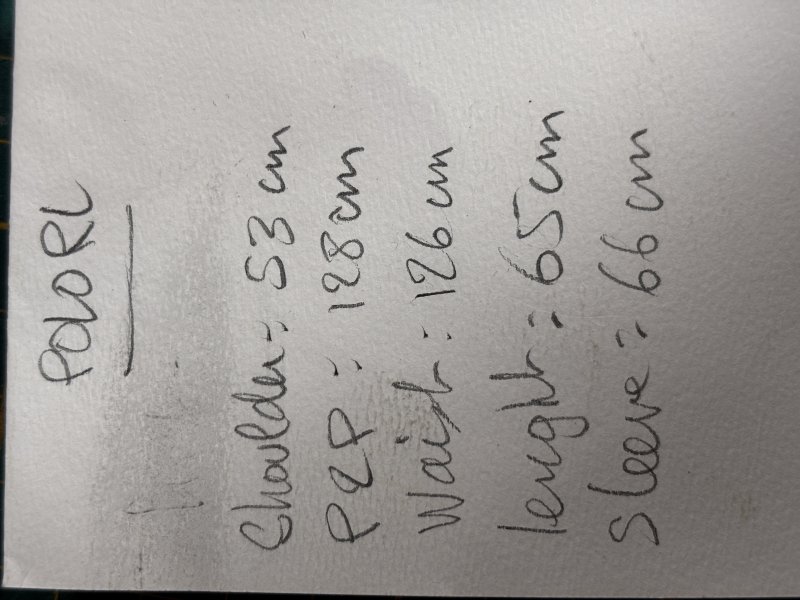 POLO RL
Shoulder: 53 cm
P2P: 128 cm
Waist: 126 cm
lenght: 65 cm
Sleeve: 66 cm